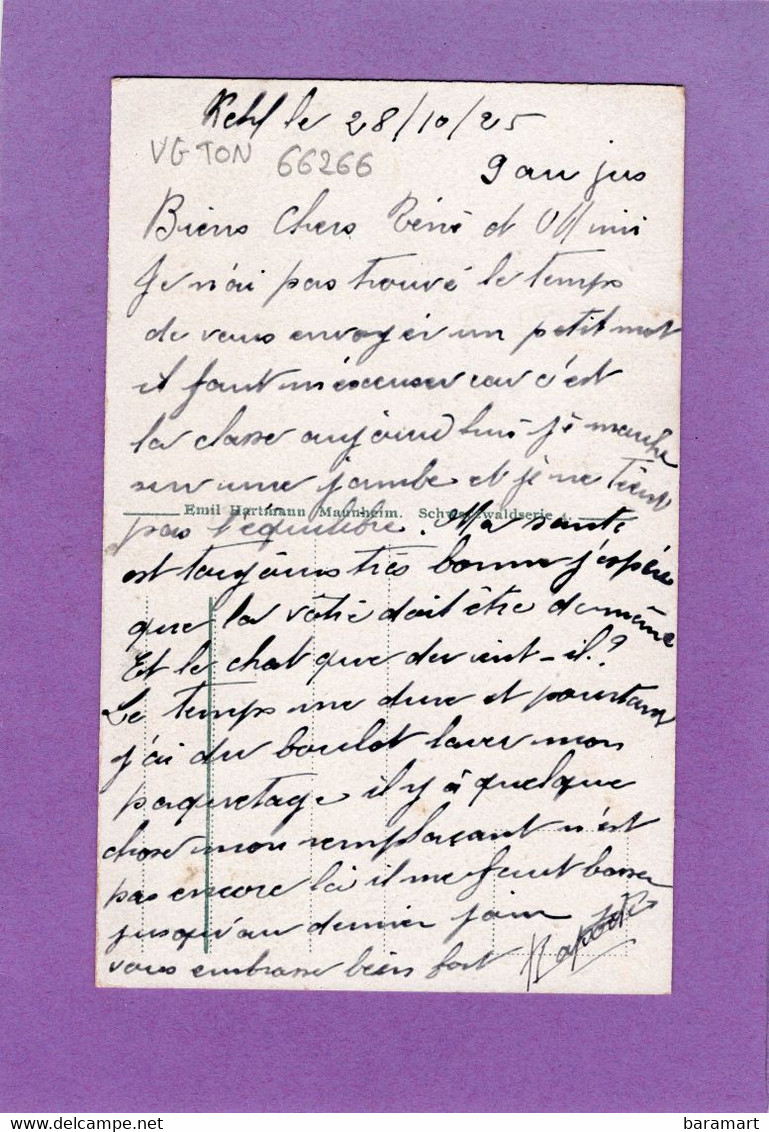 Kehl le 28/10/25
VG TON 66266
9 au jus
Biens Chers Réné et Mimi
Je n'ai pas trouvé le temps
de vous envoyer un petit mot
il faut m'éxcuser car c'est
la classe aujourd'hui je marche
sur une jambe et je ne tient
Emil Hartmann Mannheim. Schwarzwaldserie 4.
pas l'équilibre. Ma santé
est toujours très bonne j'espére
que la vôtre doit être de même
Et le chat que devient-il?
Le temps me dure et pourtant
j'ai du boulot laver mon
paquetage il y à quelque
chose mon remplaçant n'est
pas encore là il me faut bosser
jusqu'au dernier jour
vous embrasse bien fort
baramart